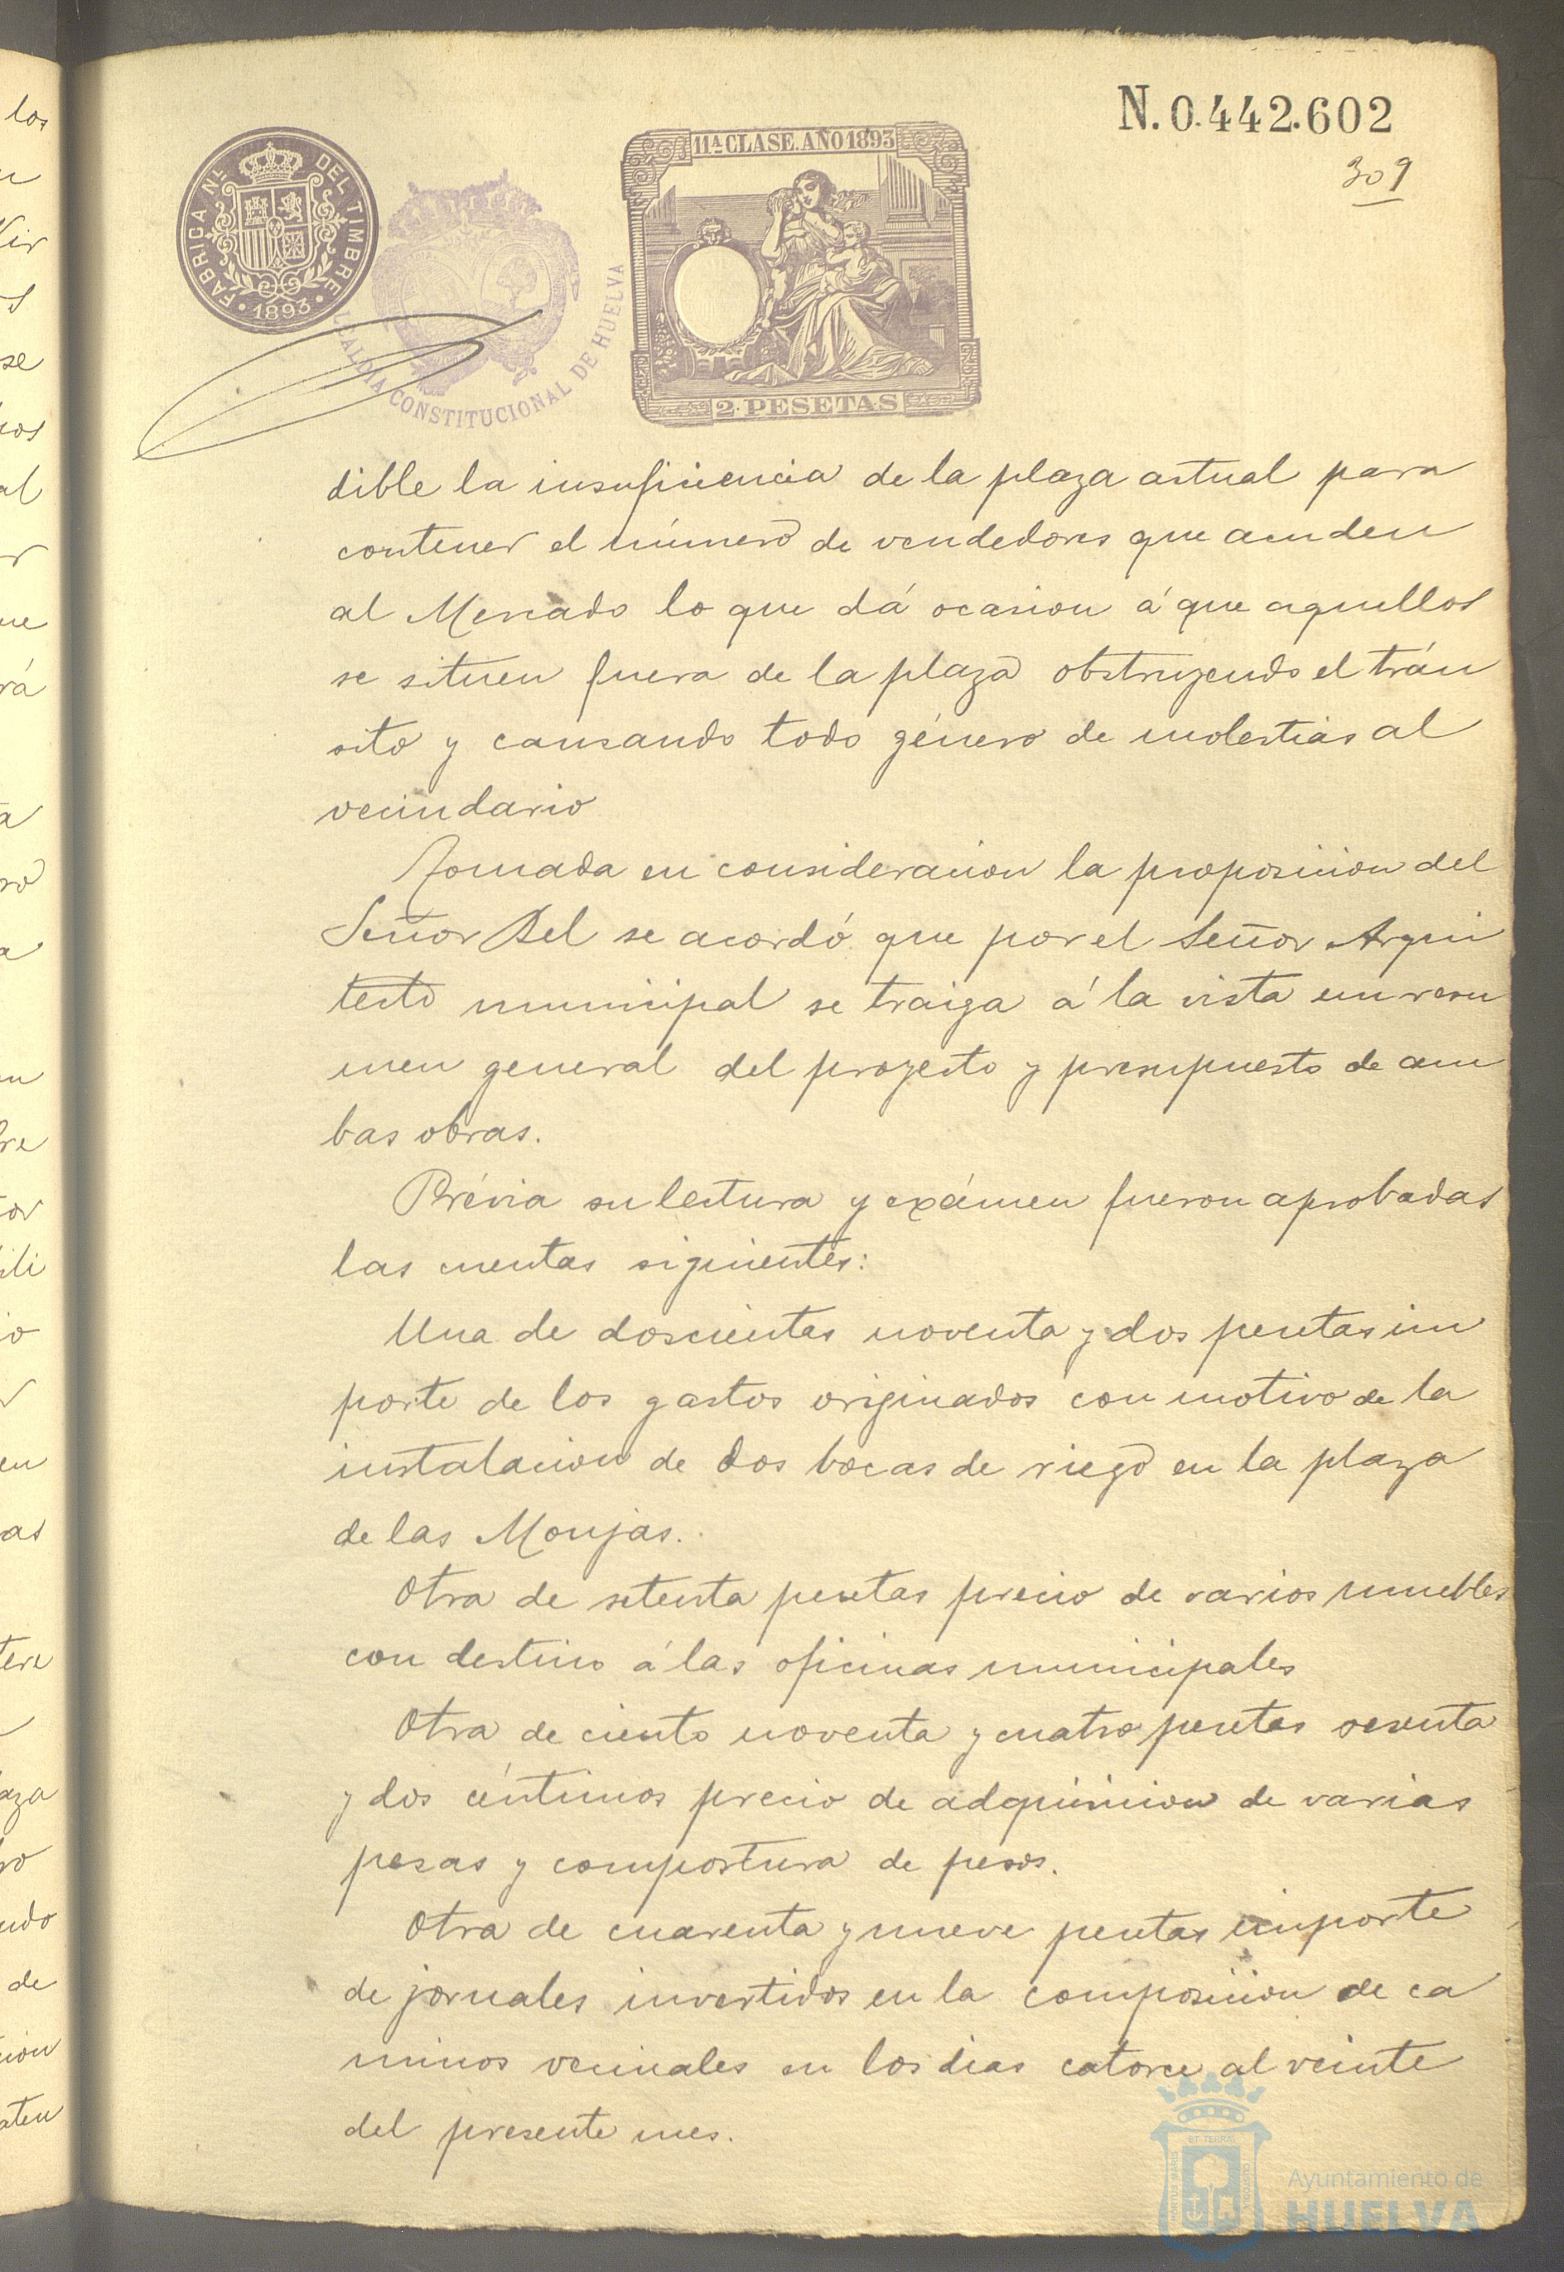 N. 0.442.602
309
11ª CLASE. AÑO 1893
FABRICA Nˡ. DEL TIMBRE
1893
ALCALDIA CONSTITUCIONAL DE HUELVA
2 PESETAS
dible la insuficiencia de la plaza actual para
contener el número de vendedores que acuden
al Mercado lo que dá ocasion á que aquellos
se situen fuera de la plaza obstruyendo el trán
sito y causando todo género de molestias al
vecindario
Tomada en consideracion la proposicion del
Señor Bel se acordó que por el Señor Arqui
tecto municipal se traiga á la vista un resu
men general del proyecto y presupuesto de am
bas obras.
Prévia su lectura y exámen fueron aprobadas
las cuentas siguientes:
Una de doscientas noventa y dos pesetas im
porte de los gastos originados con motivo de la
instalacion de dos bocas de riego en la plaza
de las Monjas.
Otra de setenta pesetas precio de varios muebles
con destino á las oficinas municipales
Otra de ciento noventa y cuatro pesetas sesenta
y dos céntimos precio de adquisicion de varias
pesas y compostura de pesos.
Otra de cuarenta y nueve pesetas importe
de jornales invertidos en la composicion de ca
minos vecinales en los dias catorce al veinte
del presente mes.
Ayuntamiento de
HUELVA